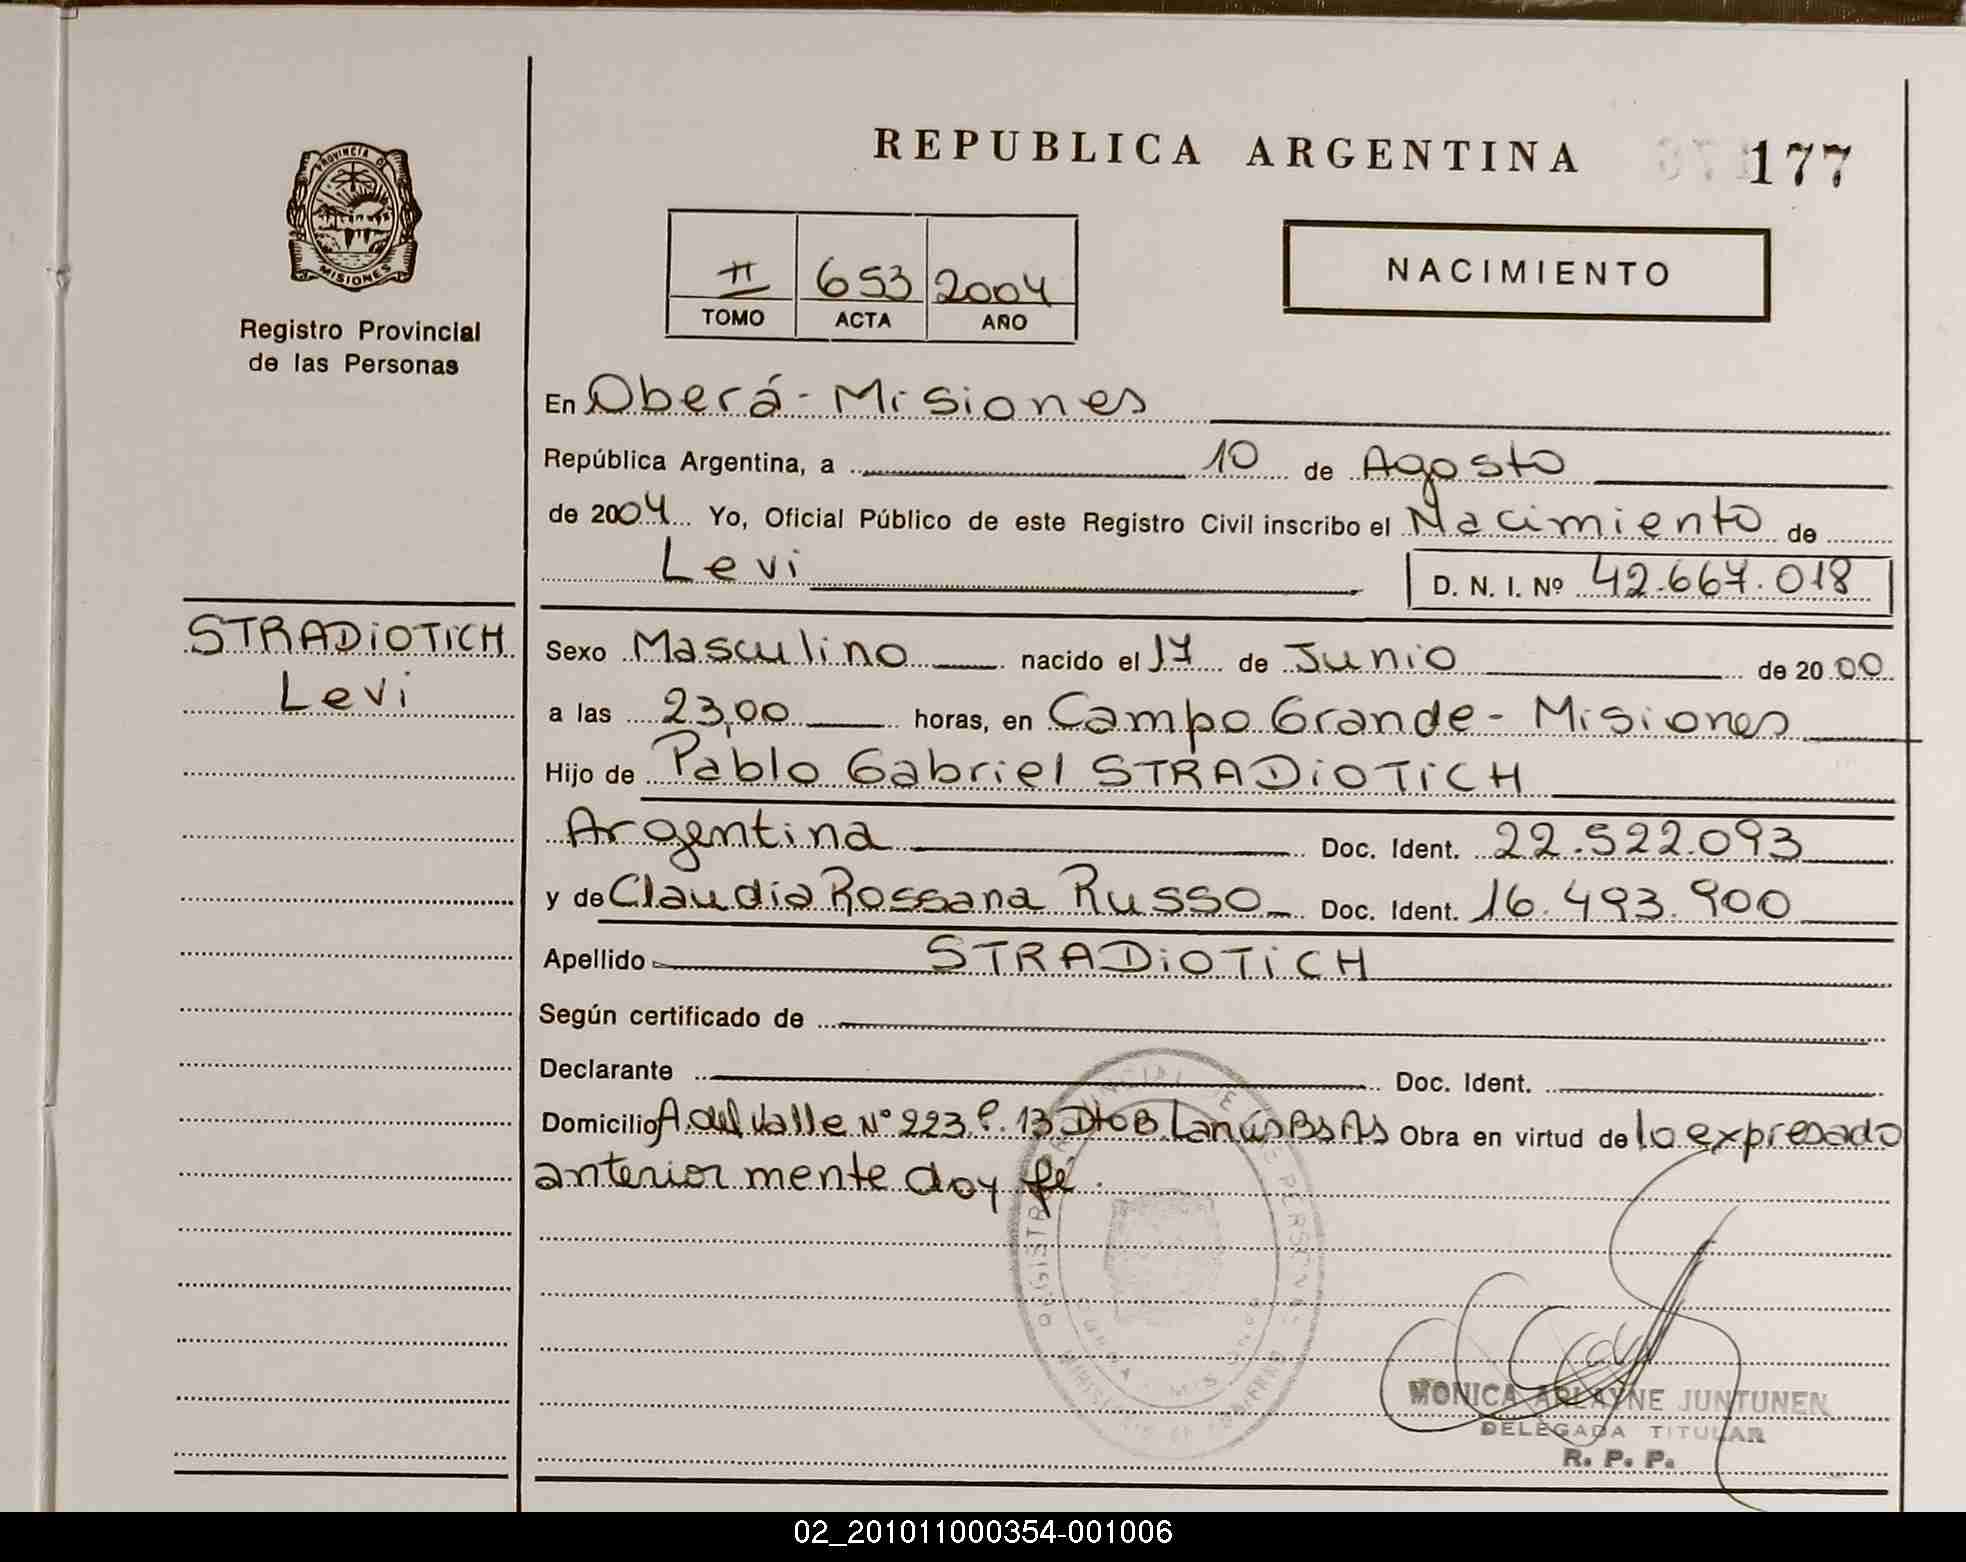 REPUBLICA ARGENTINA
177
PROVINCIA D
MISIONES
Registro Provincial
de las Personas
II 653 2004
TOMO ACTA AÑO
NACIMIENTO
En Oberá - Misiones
República Argentina, a 10 de Agosto
de 2004 Yo, Oficial Público de este Registro Civil inscribo el Nacimiento de
Levi D. N. I. Nº 42.667.018
STRADiOTiCH
Levi
Sexo Masculino nacido el 17 de Junio de 2000
a las 23,00 horas, en Campo Grande - Misiones
Hijo de Pablo Gabriel STRADiOTiCH
Argentina Doc. Ident. 22.522.093
y de Claudia Rossana Russo Doc. Ident. 16.493.900
Apellido STRADiOTiCH
Según certificado de
Declarante Doc. Ident.
Domicilio A. del Valle Nº 223 P. 13 Dto B Lanús Bs As Obra en virtud de lo expresado
anteriormente doy fé.
MONICA ARLAYNE JUNTUNEN
DELEGADA TITULAR
R. P. P.
02_201011000354-001006